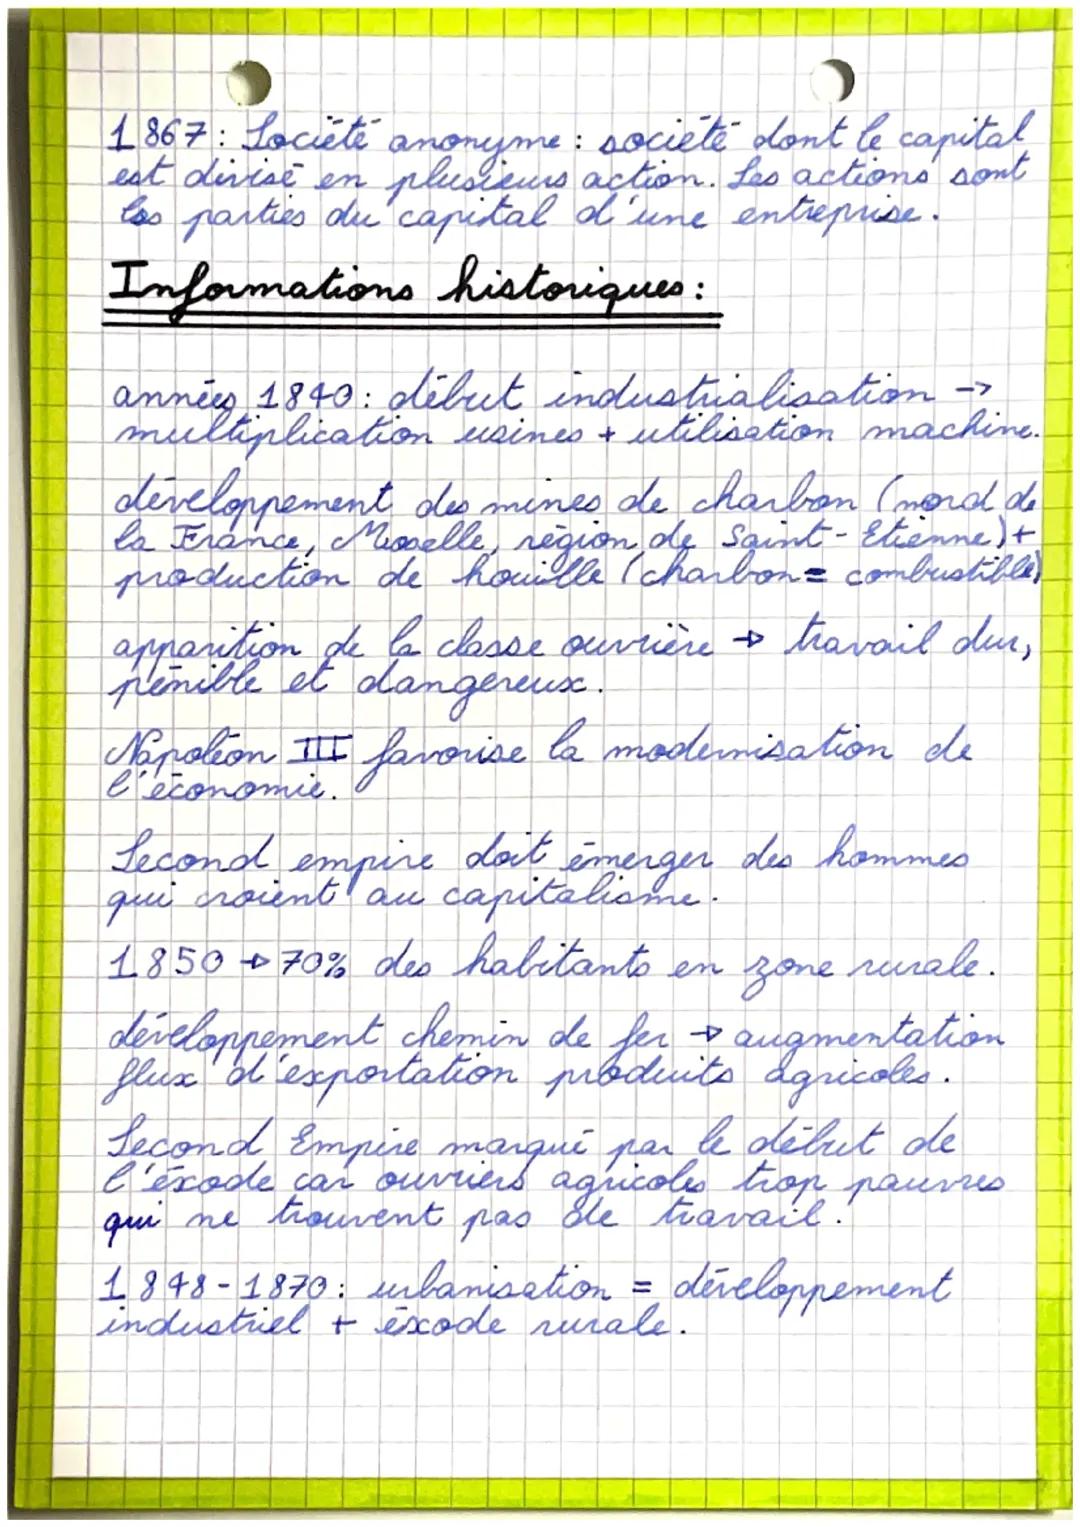 1867 : Société anonyme : société dont le capital
est divisé en plusieurs action. Les actions sont
les parties du capital d'une entreprise.
Informations historiques :
années 1840 : début industrialisation →
multiplication usines + utilisation machine.
développement des mines de charbon (nord de
la France, Moselle, région de Saint-Etienne) +
production de houille (charbon = combustible)
apparition de la classe ouvrière → travail dur,
pénible et dangereux.
Napoléon III favorise la modernisation de
l'économie.
Second empire doit émerger des hommes
qui croient au capitalisme.
1850 → 70% des habitants en zone rurale.
développement chemin de fer → augmentation
flux d'exportation produits agricoles.
Second Empire marqué par le début de
l'éxode car ouvriers agricoles trop pauvres
qui ne trouvent pas de travail.
1848-1870 : urbanisation = développement
industriel + éxode rurale.